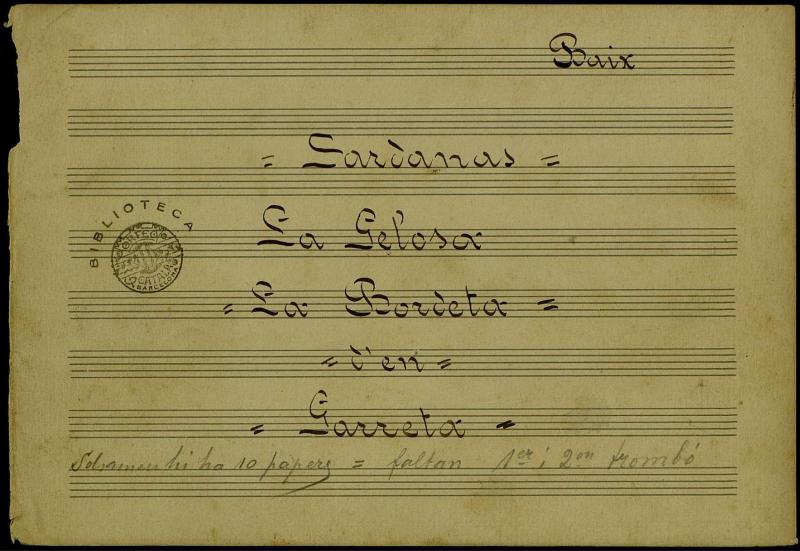 Baix
= Sardanas =
La Gelosa
= La Bordeta =
= d'en =
= Garreta =
Solsamen hi ha 10 papers = faltan 1er i 2on trombó
BIBLIOTECA
ORFEÓ CATALÀ
BARCELONA